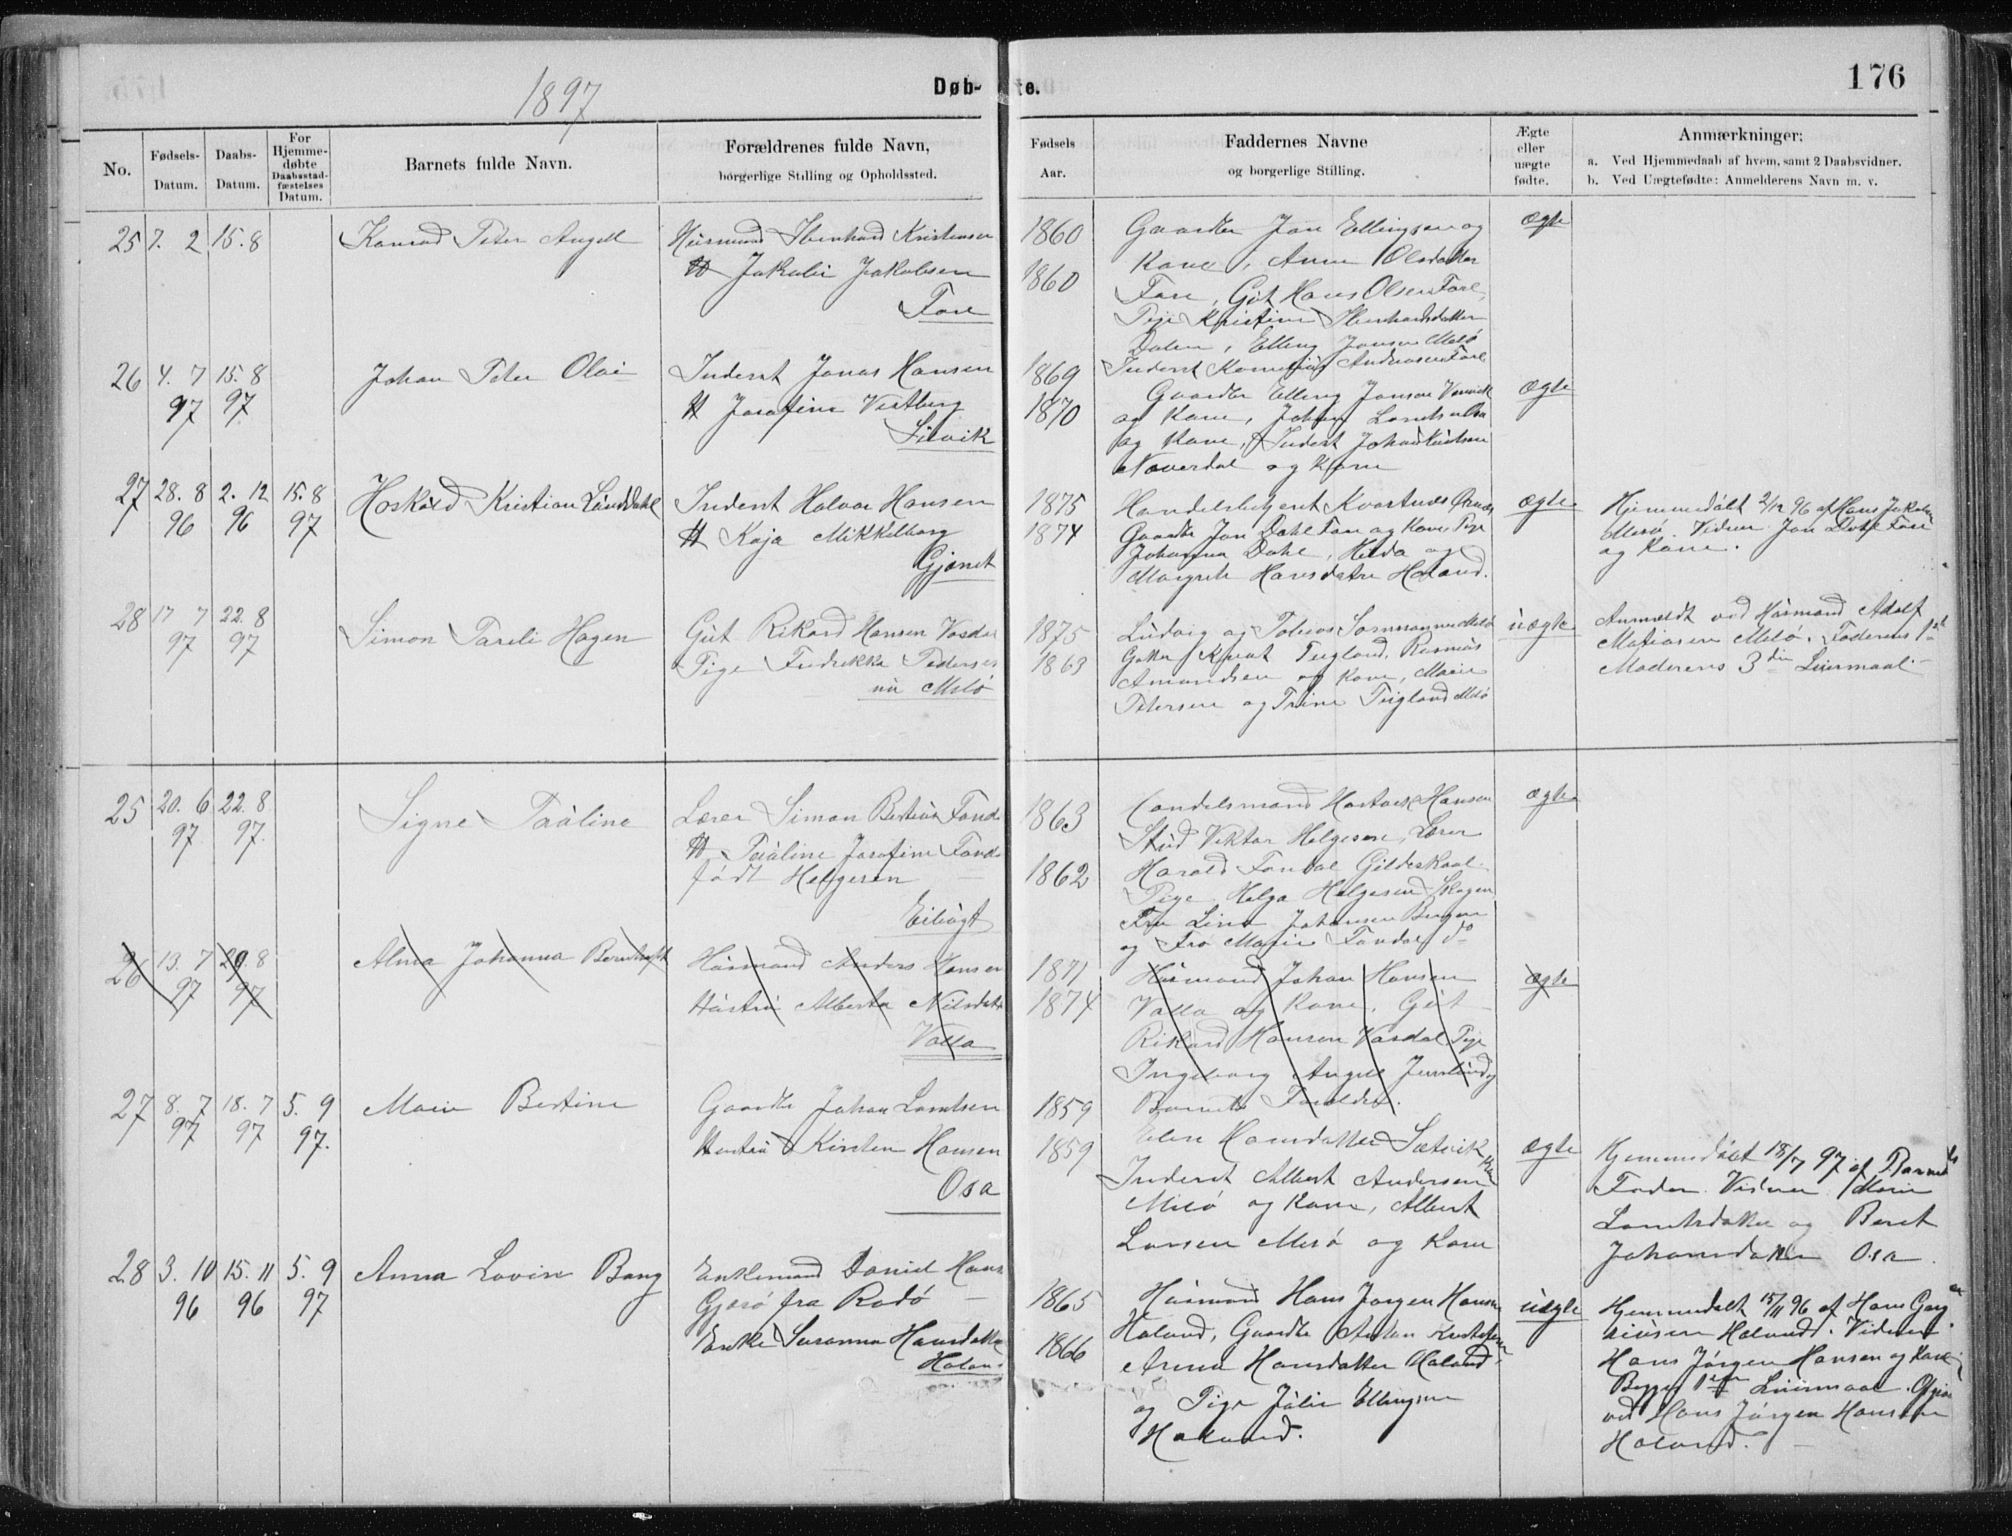 1897
Døb-
te.
176
No.
Fødsels-
Datum.
Daabs-
Datum.
For
Hjemme-
døbte
Daabsstad-
fæstelses
Datum.
Barnets fulde Navn.
Forældrenes fulde Navn,
borgerlige Stilling og Opholdssted.
Fødsels
Aar.
Faddernes Navne
og borgerlige Stilling.
Ægte
eller
uægte
fødte.
Anmærkninger:
a. Ved Hjemmedaab af hvem, samt 2 Daabsvidner.
b. Ved Uægtefødte: Anmelderens Navn m. v.
25 7. 2 15. 8
Konrad Peter Angell
Husmand Ibenhard Kristensen
H Jakobi Jakobsen
Fore
1860
1860
Gaardbr Jon Ellingsen og
Kone, Anne Olsdatter
Fore, Gut Hans Olsen Fore,
Pige Kristine Ibenhardsdatter
Dalen, Elling Jonsen Melö
Inderst Andreasen Fore
ægte
26 4. 7 15. 8
97 97
Johan Peter Olai
Inderst Jonas Hansen
H Josefine Vestberg
1869
1870
Gaardbr Elling Jonsen
og Kone, Johan Lorntsen Osa
og Kone, Inderst Johan
og Kone
ægte
27 28. 8 2. 12 15. 8
96 96 97
Hoskold Kristian Lund Dahl
Inderst Halvor Hansen
H Kaja Mikkelborg
Gjöset
1875
1874
Handelsbetjent
Gaardbr Jon Dahl Fore og Kone Pige
Johanna Dahl, Hilda og
Margrete Hansdatre Haland.
ægte
Hjemmedøbt 2/12 96 af Hans Jakobsen
Melö. Vidner Jon Dahl Fore
og Kone.
28 17 7 22. 8
97 97
Simon Pareli Hagen
Gut Rikard Hansen Vasdal
Pige Fredrikke Pedersen
nu Melö
1875
1863
Ludvig og Tobias Melö
Teigland, Rasmus
Amundsen og Kone, Marie
Petersen og Trine Teigland Melö
uægte
Anmeldt ved Husmand Adolf
Matiasen Melö. Faderens 1ste
Moderens 3die Leiermaal.
25 20. 6 22. 8
97 97.
Signe Pauline
Lærer Simon Bertius Fondal
H Pauline Josefine Fondal
født Helgesen
Eilivgt
1863
1862
Handelsmand Hartvik Hansen
Stud Viktor Helgesen, Lærer
Harald Fondal Gildeskaal.
Pige Helga Helgesen Skagen
Fru Lina Johansen Bergen
og Fro Marie Fondal do
ægte
26 13. 7 29. 8
97 97
Alma Johanna Bernhoft
Husmand Anders Hansen
Hustru Alberta Nilsdatter
Valla
1871
1874
Husmand Johan Hansen
Valla og Kone, Gut
Rikard Hansen Vasdal, Pige
Ingeborg Angell
Barnets Forældre.
ægte
27 8. 7 18. 7 5. 9
97 97 97.
Marie Bertine
Gaardbr Johan Lorntsen
Hustru Kirsten Hansen
Osa
1859
1859
Elen Hansdatter Sætvik
Inderst Albert Andersen
Melö og Kone, Albert
Larsen Melö og Kone
ægte
Hjemmedøbt 18/7 97 af Barnets
Fader. Vidner Marie
Lorntsdatter og Beret
Johansdatter Osa.
28 3. 10 15. 11 5. 9
96 96 97
Anna Lovise Bang
Enkemand Daniel Hans
Gjesö fra Rodö
Enke Susanna Hansdatter
Haland
1865
1866
Husmand Hans Jørgen Hansen
Haland, Gaardbr Anton Kristofersen
Anna Hansdatter Haland
og Pige Julie Ellingsen
Haland.
uægte
Hjemmedøbt 15/11 96 af Hans Georg
Haland. Vidner
Hans Jørgen Hansen og Kone
Begges 1ste Leiermaal. Opgivet
ved Hans Jørgen Hansen
Haland.